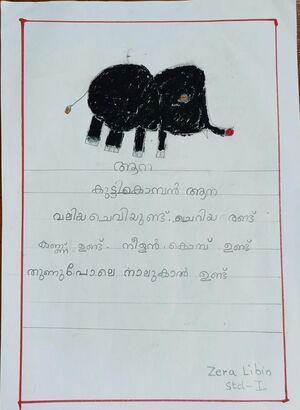 ആന
കുട്ടികൊമ്പൻ ആന
വലിയ ചെവിയുണ്ട്. ചെറിയ രണ്ട്
കണ്ണ് ഉണ്ട്. നീളൻ കൊമ്പ് ഉണ്ട്
തുണുപോലെ നാലുകാൽ ഉണ്ട്
Zera Libin
Std-I